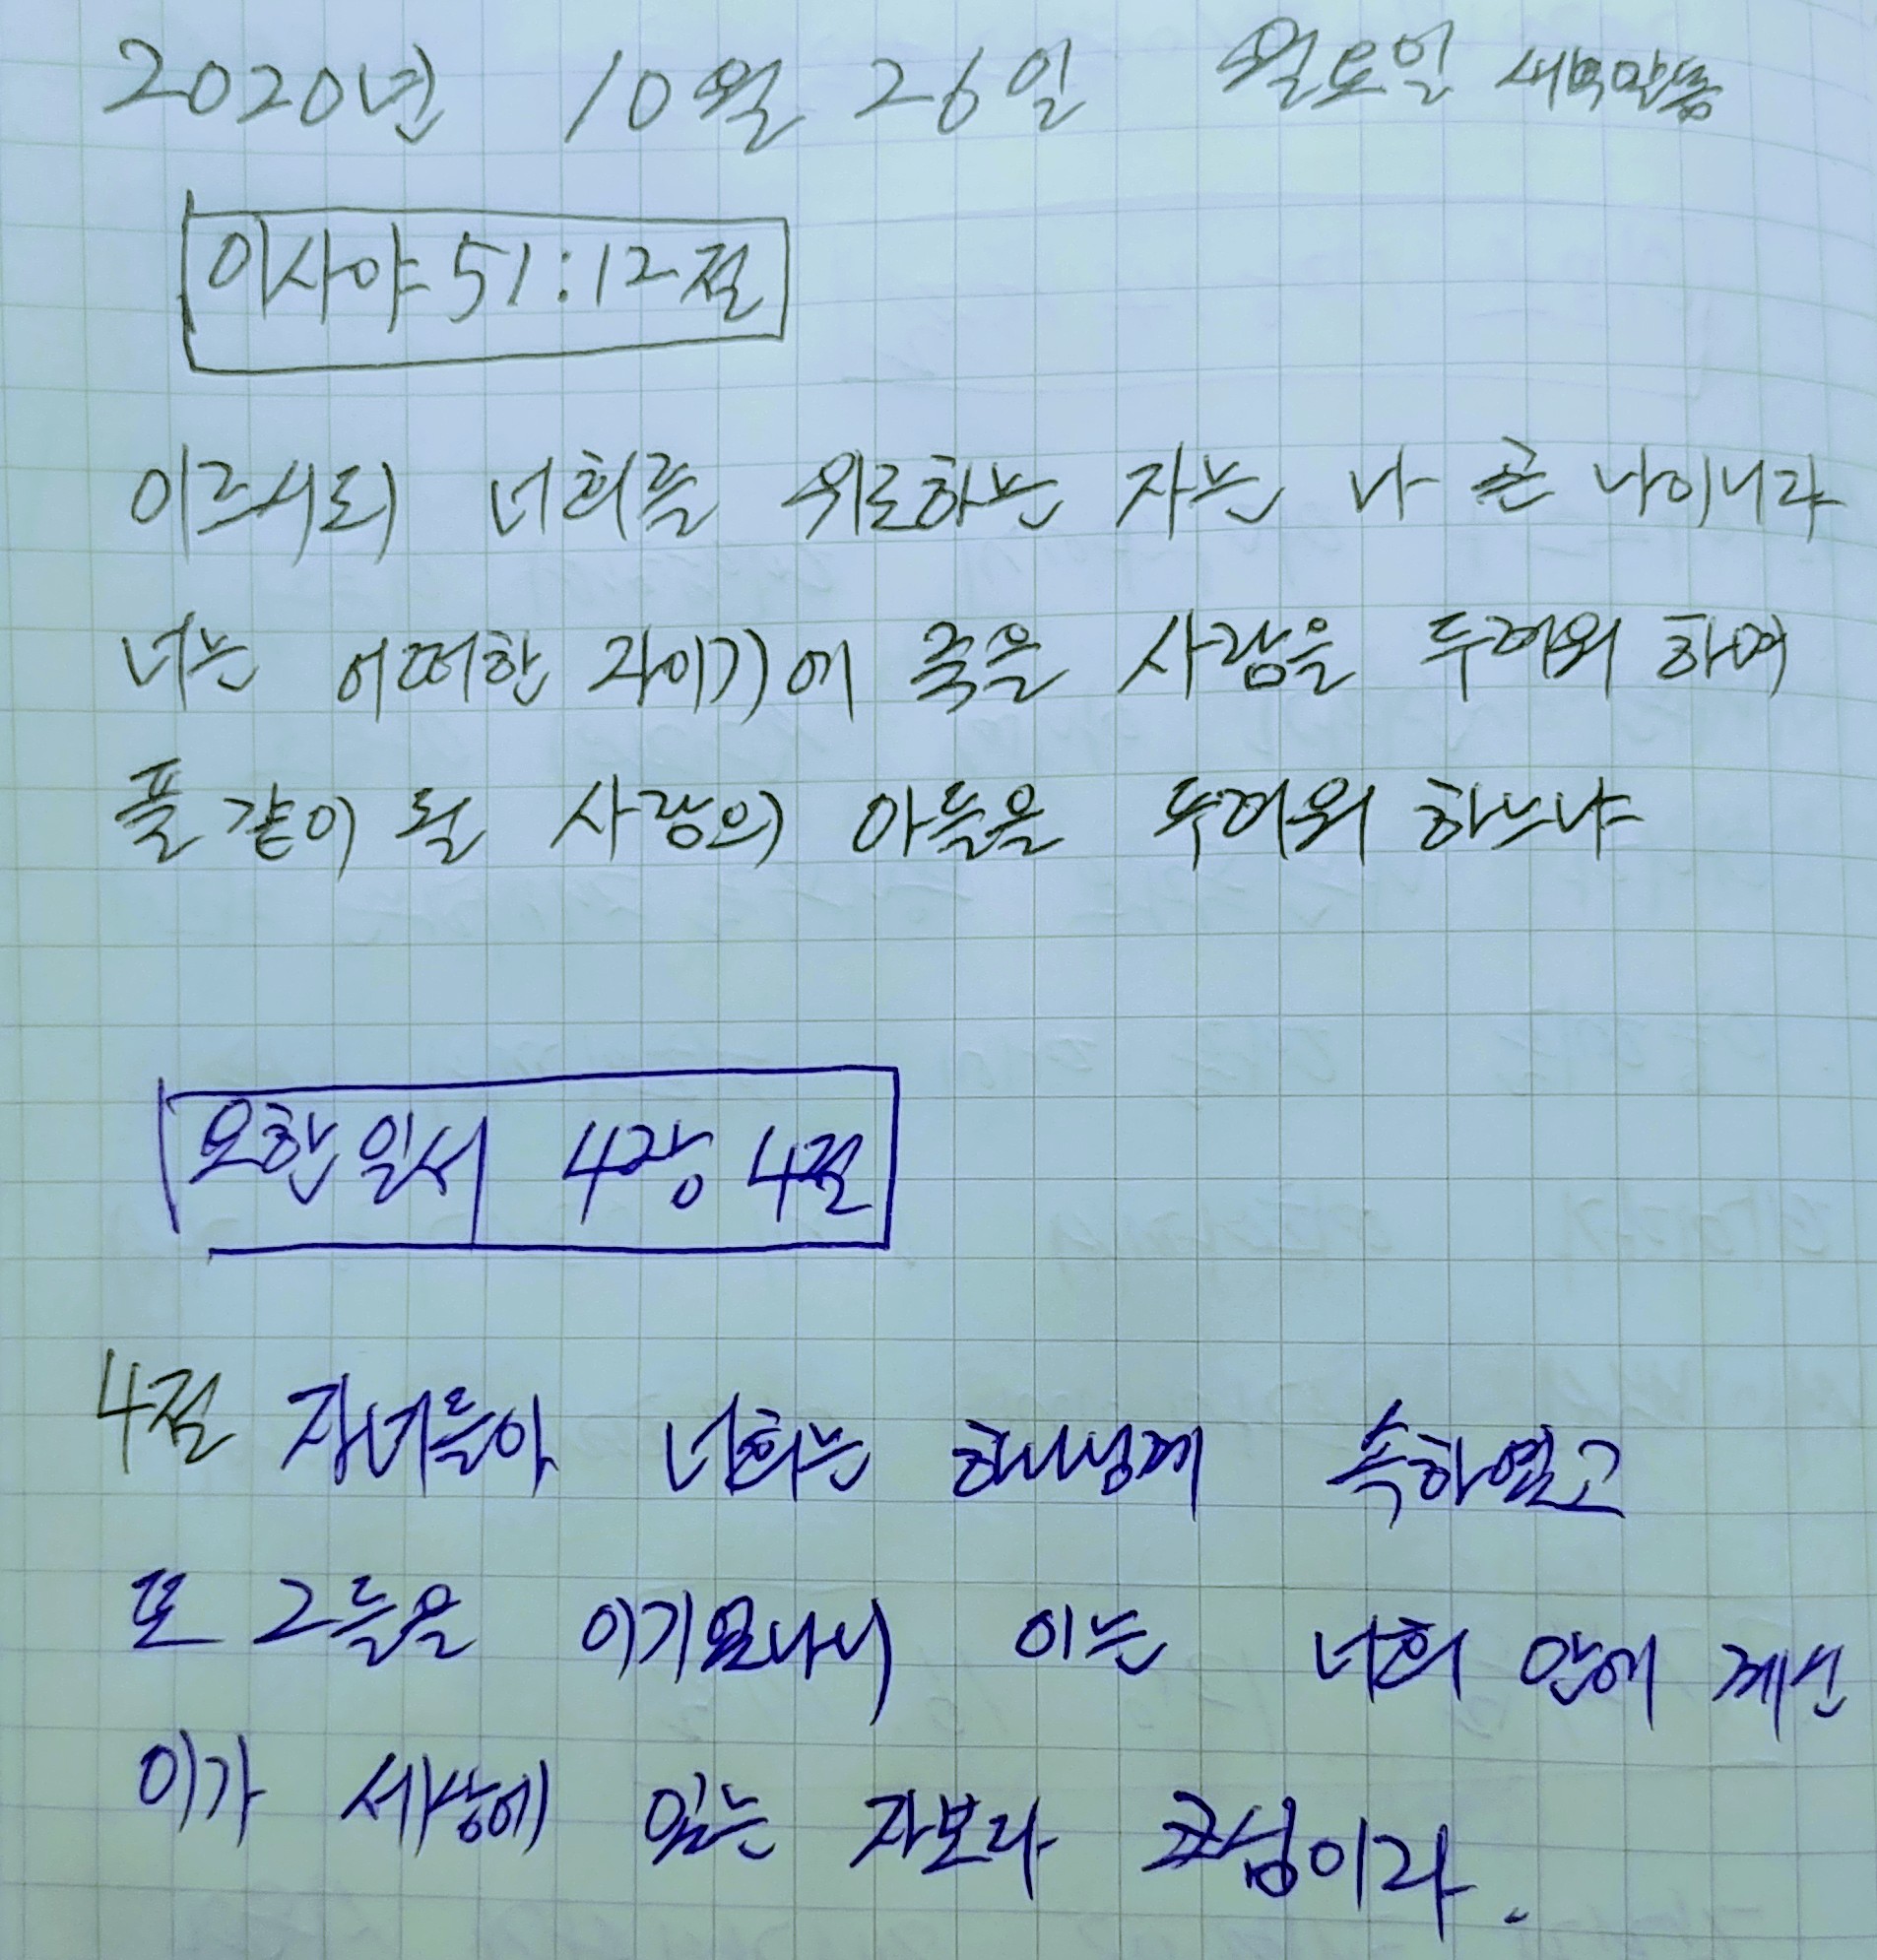 2020년 10월 26일 월요일 새벽말씀
이사야 51:12절
이르시되 너희를 위로하는 자는 나 곧 나이니라
너는 어떠한 자이기에 죽을 사람을 두려워 하며
풀 같이 될 사람의 아들을 두려워 하느냐
요한일서 4장 4절
4절 자녀들아 너희는 하나님께 속하였고
또 그들을 이기였나니 이는 너희 안에 계신
이가 세상에 있는 자보다 크심이라.